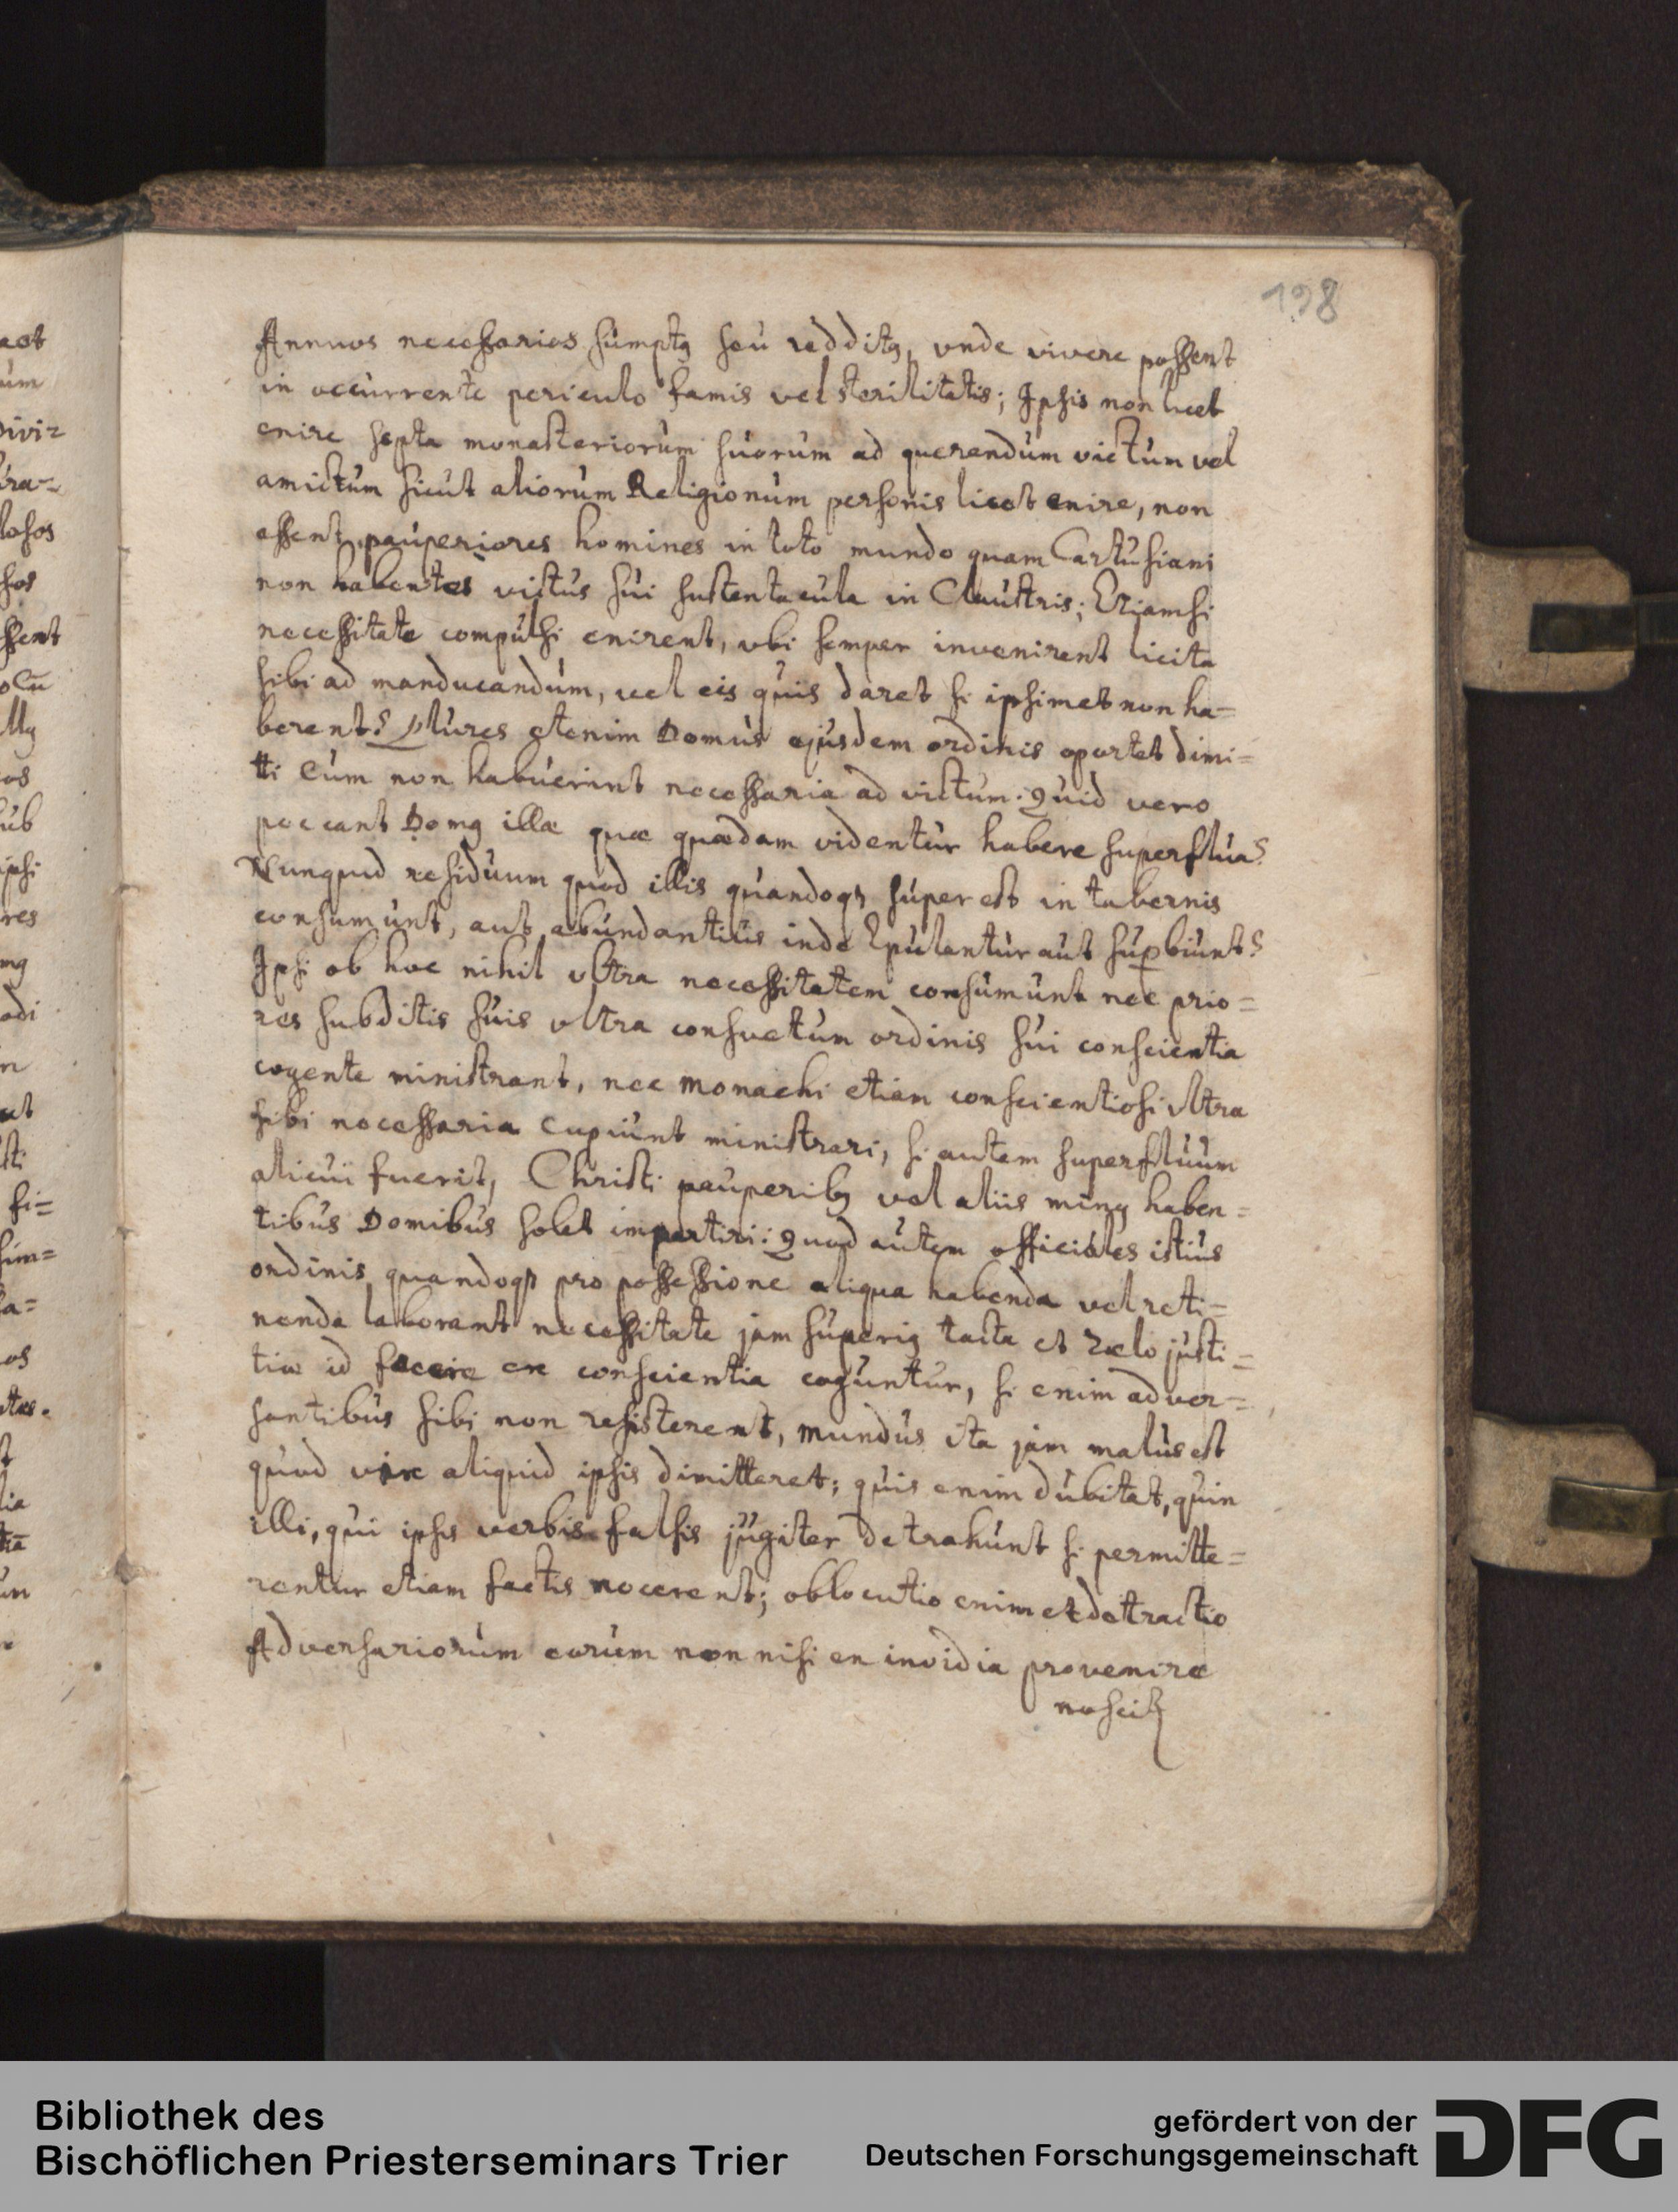 198
Annuos necessarios sumptꝰ seu redditꝰ, vnde vivere possent
in occurrente periculo famis vel sterilitatis; Ipsis non licet
exire septa monasteriorum suorum ad querendum victum vel
amictum sicut aliorum Religionum personis licet exire, non
essent pauperiores homines in toto mundo quam Cartusiani
non habentes victus sui sustentacula in Claustris; Etiamsi
necessitate compulsi exirent, vbi semper invenirent licita
sibi ad manducandum, vel eis quis daret si ipsimet non ha=
berent? Plures etenim Domus ejusdem ordinis oportet dimi=
tti Cum non habuerint necessaria ad victum. Quid vero
peccant Domꝰ illæ quæ quædam videntur habere superflua?
Nunquid residuum quod illis quandoqꝫ super est in tabernis
consumunt, aut abundantius inde Epulantur aut suꝑbiunt?
Ipsi ob hoc nihil vltra necessitatem consumunt nec prio=
res subditis suis vltra consuetum ordinis sui conscientia
cogente ministrant, nec monachi etiam conscientiosi vltra
sibi necessaria cupiunt ministrari, si autem superfluum
alicui fuerit, Christi pauperibꝰ vel aliis minꝰ haben=
tibus Domibus solet impartiri: Quod autem officiales istius
ordinis quandoqꝫ pro possessione aliqua habenda vel reti=
nenda laborant necessitate jam superiꝰ tacta et zelo justi=
tiæ id facere ex conscientia coguntur, si enim adver=
santibus sibi non resisterent, mundus ita jam malus est
quod vix aliquid ipsis dimitteret; quis enim dubitat, quin
illi, qui ipsis verbis falsis jugiter detrahunt si permitte=
rentur etiam factis nocerent; oblocutio enim et detractio
Adversariorum eorum non nisi ex invidia provenire
noscitꝛ
Bibliothek des
Bischöflichen Priesterseminars Trier
gefördert von der
Deutschen Forschungsgemeinschaft
DFG